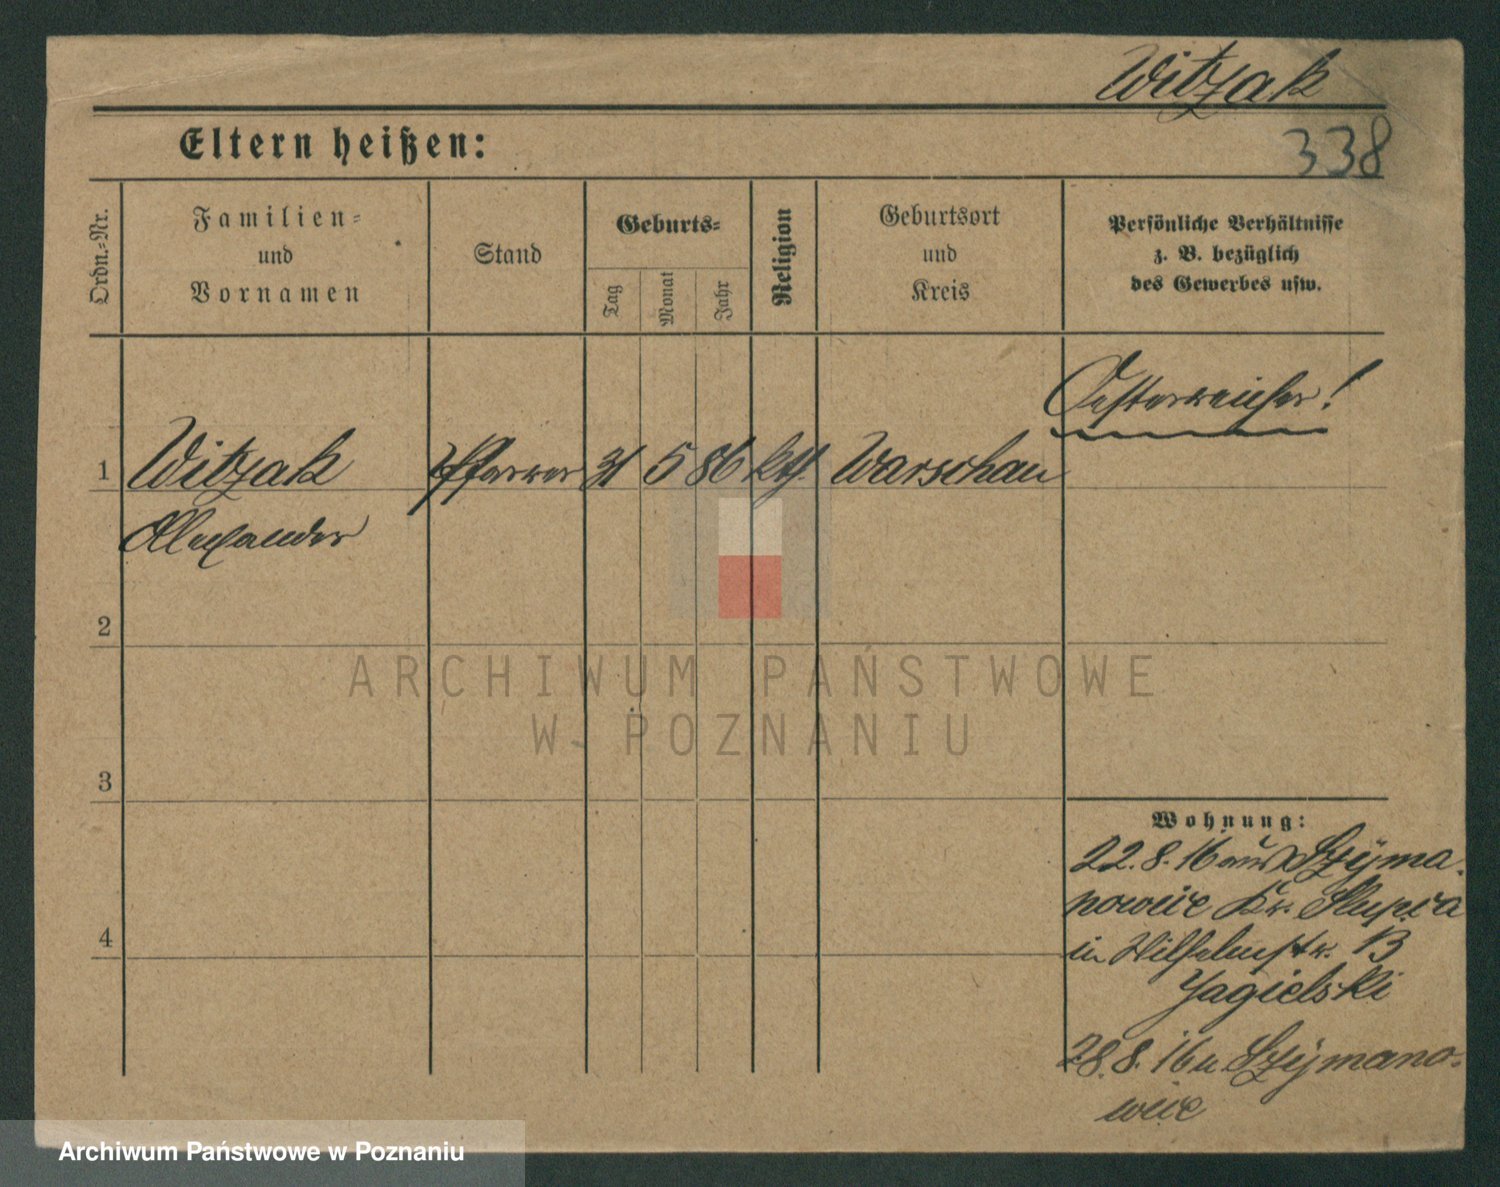 Witzak
Eltern heißen:
338
Ordn.-Nr.
Familien-
und
Vornamen
Stand
Geburts-
Tag
Monat
Jahr
Religion
Geburtsort
und
Kreis
Persönliche Verhältnisse
z. B. bezüglich
des Gewerbes usw.
Oesterreicher!
1 Witzak Pfarrer 31 5 86 kth. Warschau
Alexander
2
3
4
ARCHIWUM PAŃSTWOWE
W POZNANIU
Wohnung:
22.8.16 aus Szyma-
nowice Kr. Slupca
in Wilhelmstr. 13
Jagielski
28.8.16 n. Szymano-
wice
Archiwum Państwowe w Poznaniu